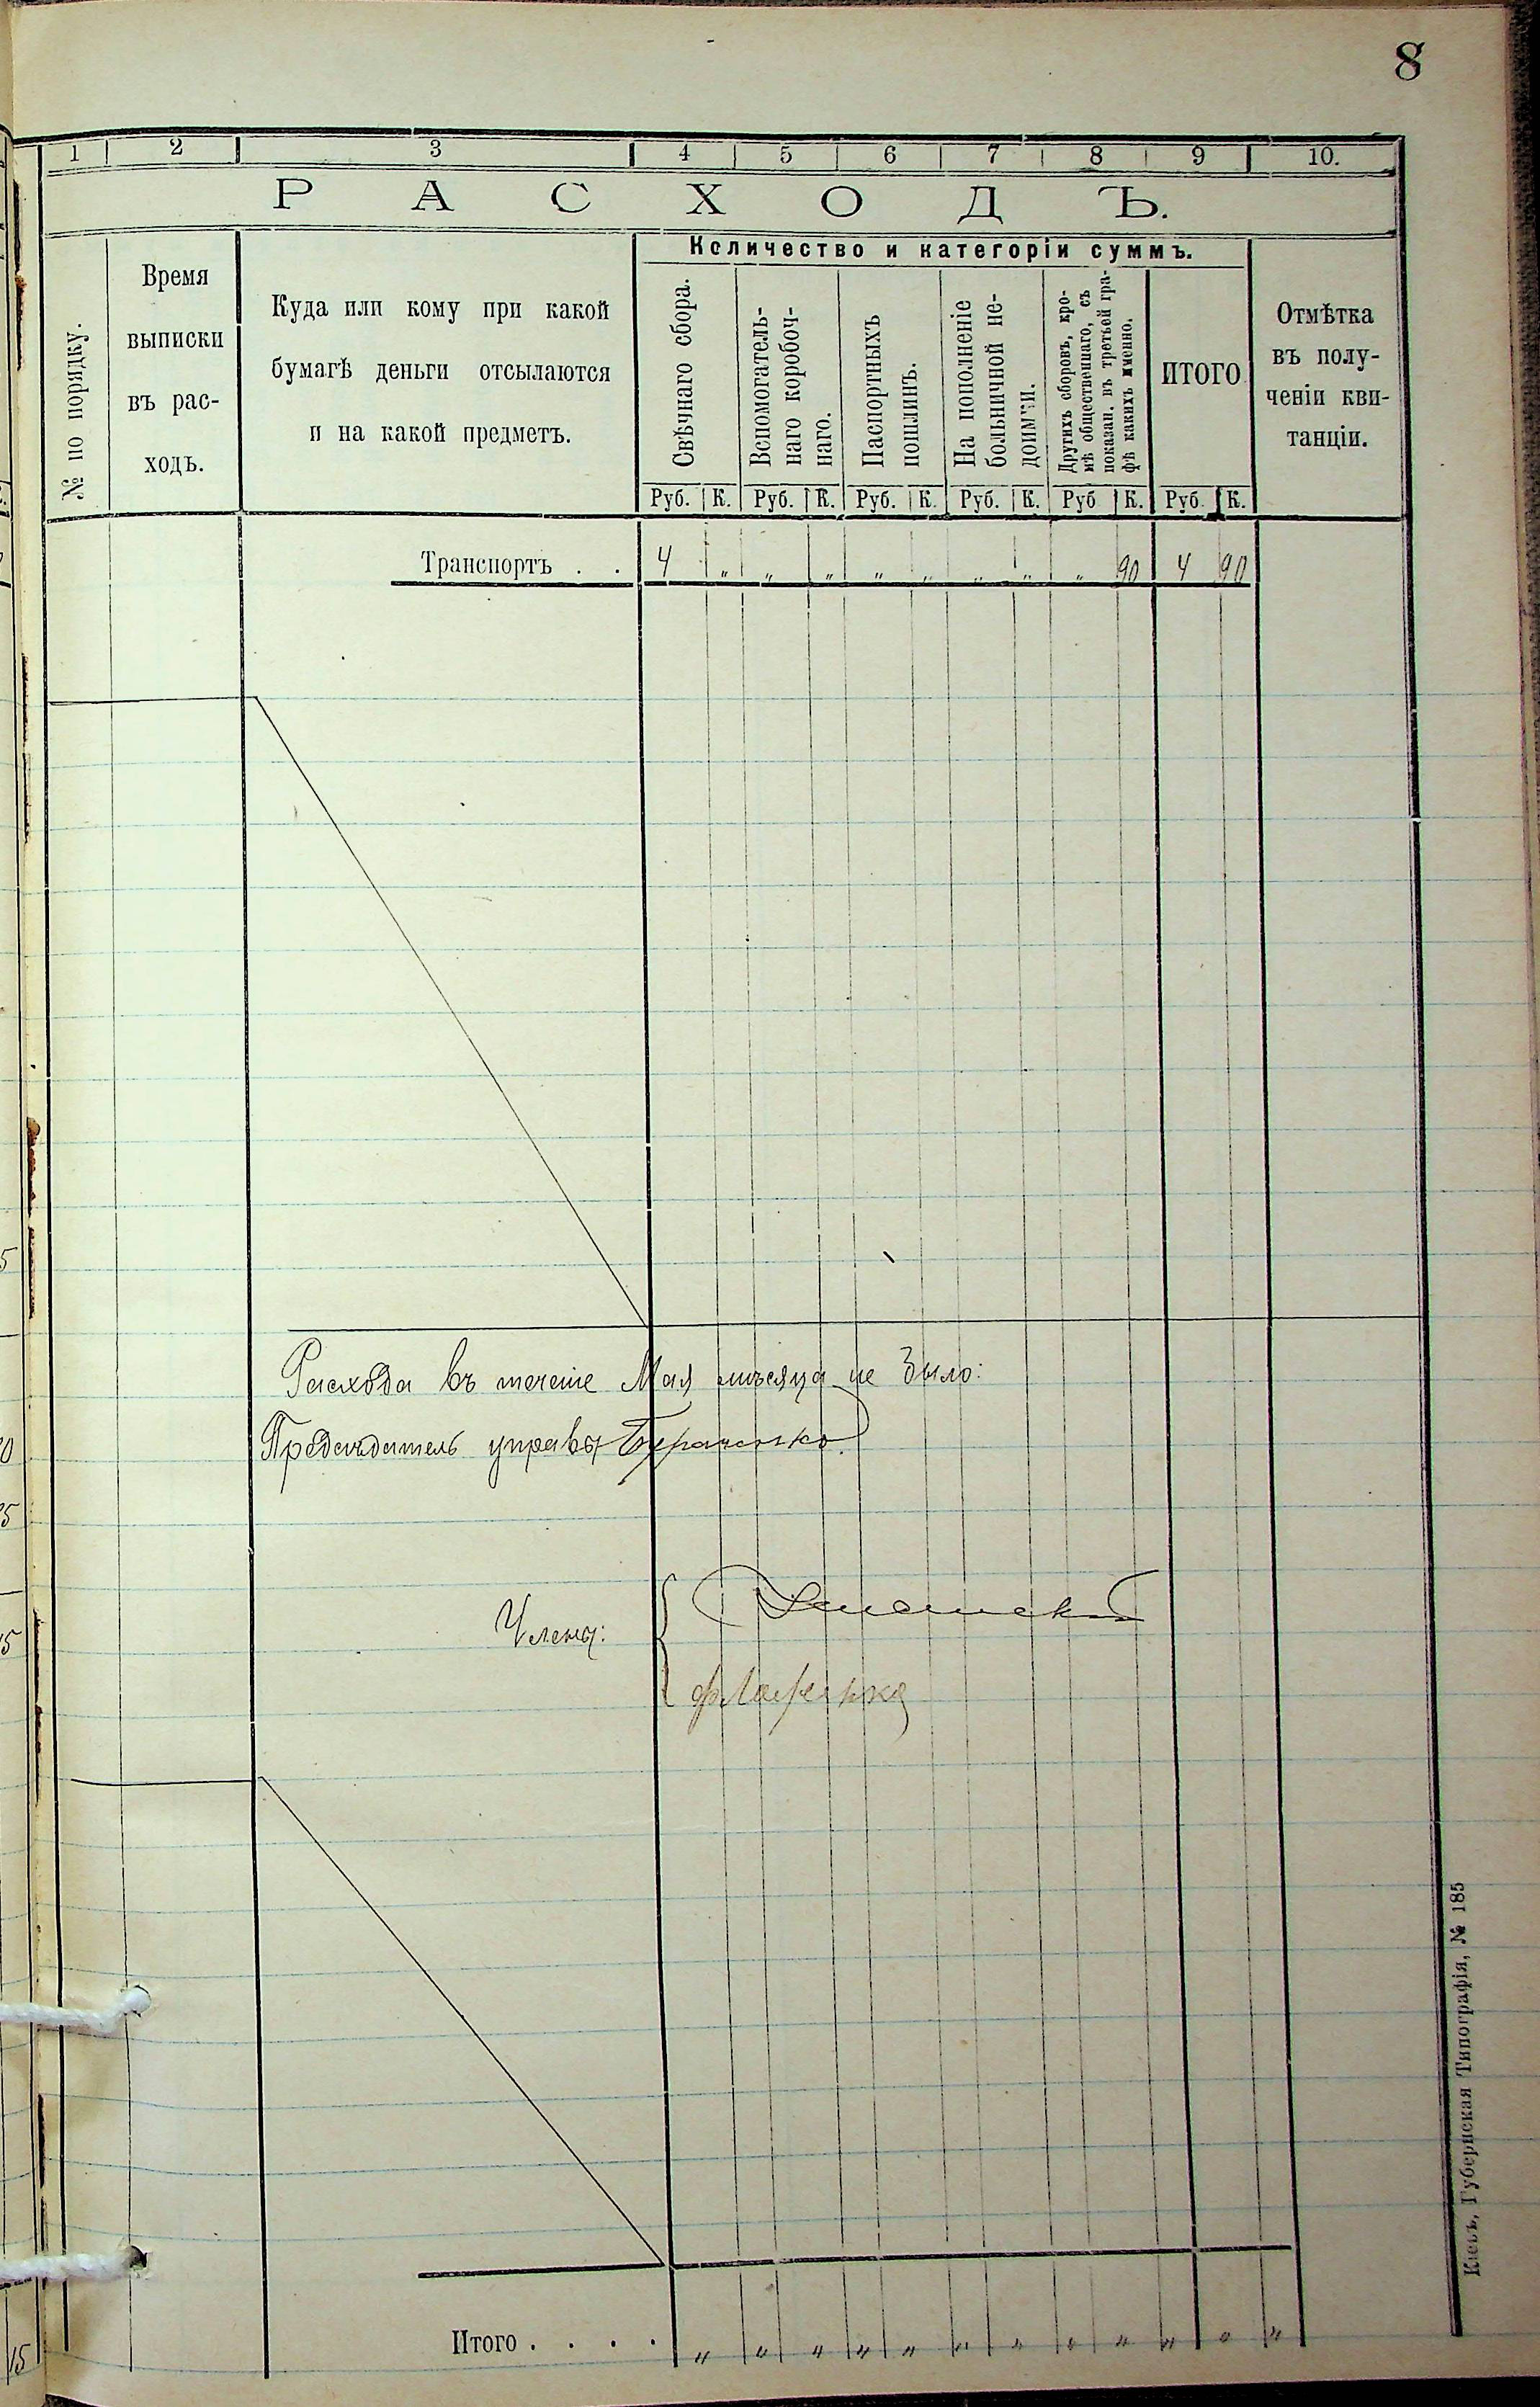 8
1 2 3 4 5 6 7 8 9 10.
РАСХОДЪ.
№ по порядку.
Время
выписки
въ рас-
ходъ.
Куда или кому при какой
бумагѣ деньги отсылаются
и на какой предметъ.
Количество и категоріи суммъ.
Свѣчнаго сбора.
Вспомогатель-
наго коробоч-
наго.
Паспортныхъ
пошлинъ.
На пополненіе
больничной не-
доимки.
Другихъ сборовъ, кро-
мѣ общественнаго, съ
показан. въ третьей гра-
фѣ какихъ именно.
ИТОГО
Отмѣтка
въ полу-
ченіи кви-
танціи.
Руб. К. Руб. К. Руб. К. Руб. К. Руб К. Руб. К.
Транспортъ . . 4 " " " " " " " " 90 4 90
Расхода въ теченіе Мая мѣсяца не было:
Предсѣдатель управы
Члены:
Итого . . . . " " " " " " " " " " " "
Кіевъ, Губернская Типографія, № 185
5
0
5
5
15